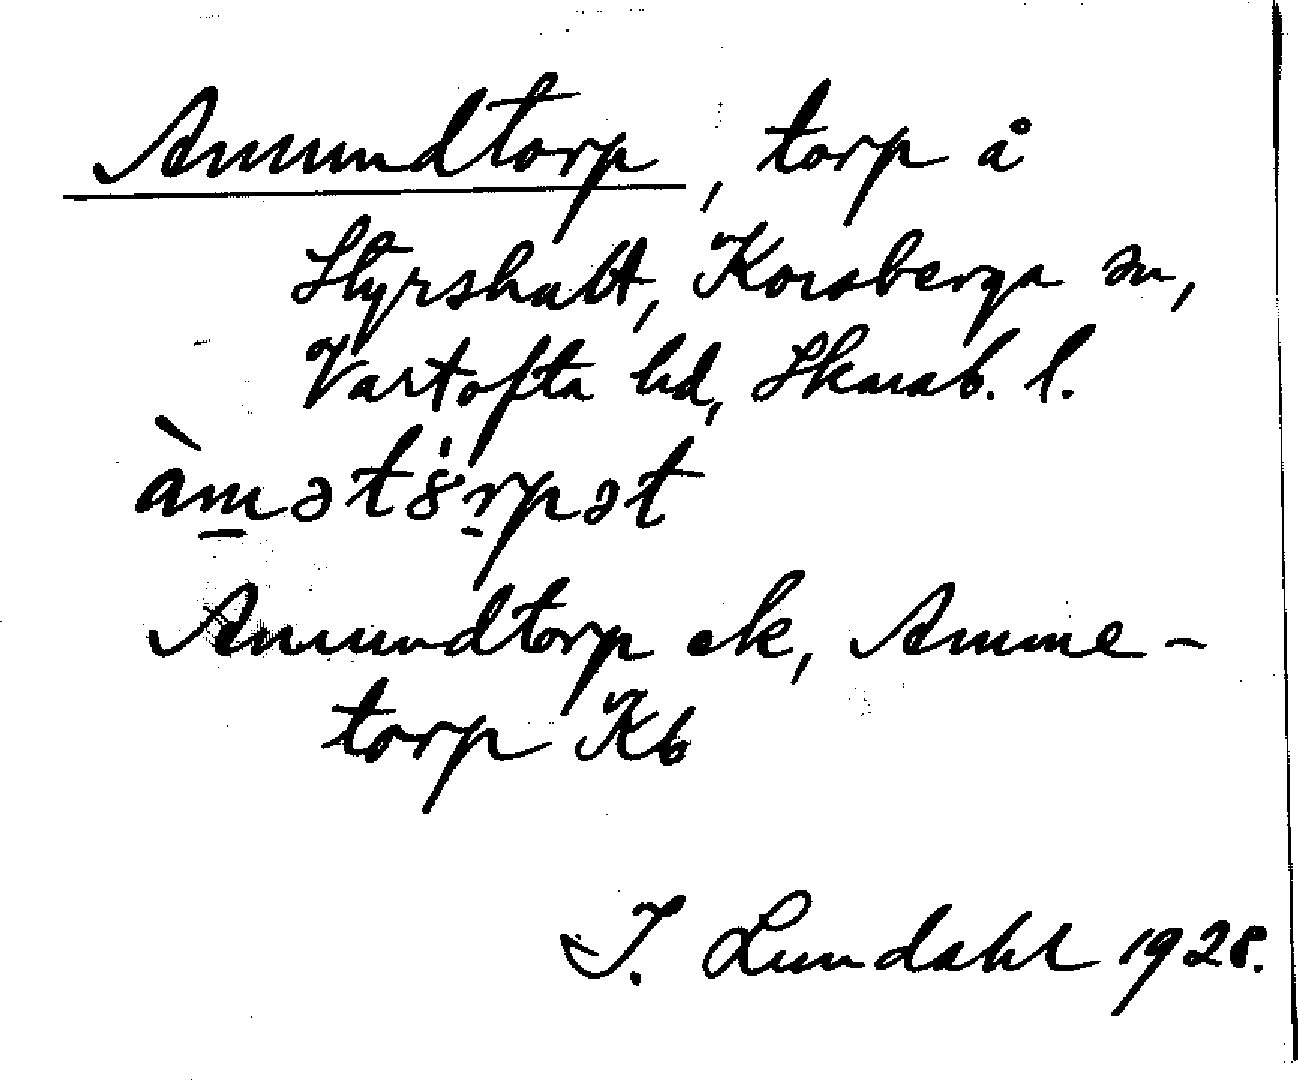 Amundtorp, torp å
Styrshult, Korsberga sn,
Vartofta hd, Skarab. l.
àm̲ətȯ̀r̠pət
Amundtorp ek, Amme-
torp Kb
I. Lundahl 1928.